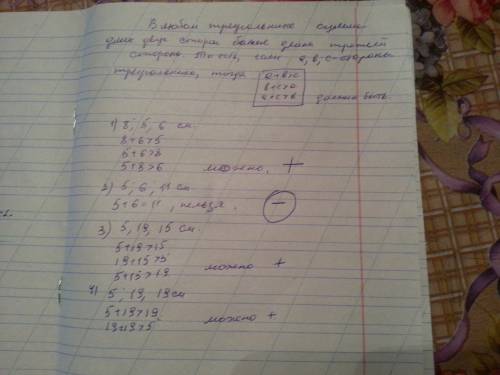 В любом треугольнике сумма
длин двух сторон больше длины третьей
стороны. То есть, если а, в, с - стороны
треугольника, тогда
а+в>с
в+с>а
а+с>в
должно быть.
1) 8, 5, 6 см.
8+6>5
5+6>8
5+8>6 можно, +
2) 5, 6, 11 см.
5+6=11, нельзя. -
3) 5, 19, 15 см.
5+19>15
19+15>5
5+15>19 можно +
4) 5, 19, 19 см
5+19>19
19+19>5 можно +